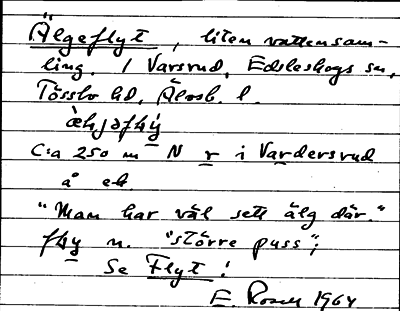 Älgeflyt, liten vattensam-
ling. I Varsrud, Edsleskogs sn,
Tössbo hd, Älvsb. l.
C:a 250 m N r i Vardersrud
å ek.
"Man har väl sett älg där."
fly n. "större puss";
Se Flyt!
E. 1964